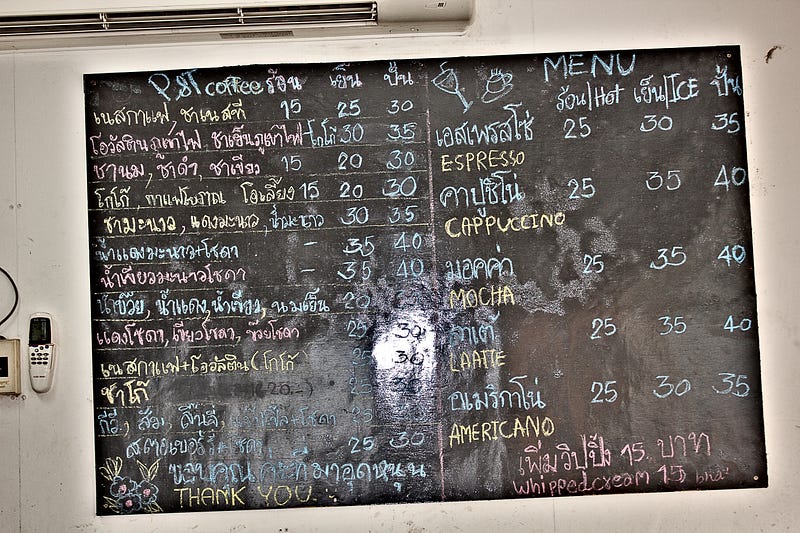 P.ST coffee ร้อน เย็น ปั่น
เนสกาแฟ, ชาเนสที 15 25 30
โอวัลตินภูเขาไฟ ชาเย็นภูเขาไฟ โกโก้ 30 35
ชานม, ชาดำ, ชาเขียว 15 20 30
โกโก้, กาแฟโบราณ โอเลี้ยง 15 20 30
ชามะนาว, แดงมะนาว, น้ำมะนาว 30 35
น้ำแดงมะนาว+โซดา - 35 40
น้ำเขียวมะนาวโซดา - 35 40
น้ำบ๊วย, น้ำแดง, น้ำเขียว, นมเย็น 20
แดงโซดา, เขียวโซดา, บ๊วยโซดา 25 30
เนสกาแฟ+โอวัลติน (โกโก้) 25 30
ชาโกโก้ 25
กีวี, ส้ม, ลิ้นจี่,
สตรอเบอร์รี่+โซดา 25 30
ขอบคุณค่ะที่มาอุดหนุน
THANK YOU
MENU
ร้อน/Hot เย็น/ICE ปั่น
เอสเพรสโซ่ 25 30 35
ESPRESSO
คาปูชิโน่ 25 35 40
CAPPUCCINO
มอคค่า 25 35 40
MOCHA
ลาเต้ 25 35 40
LAATIE
อเมริกาโน่ 25 30 35
AMERICANO
เพิ่มวิปปิ้ง 15 บาท
whippedcream 15 baht